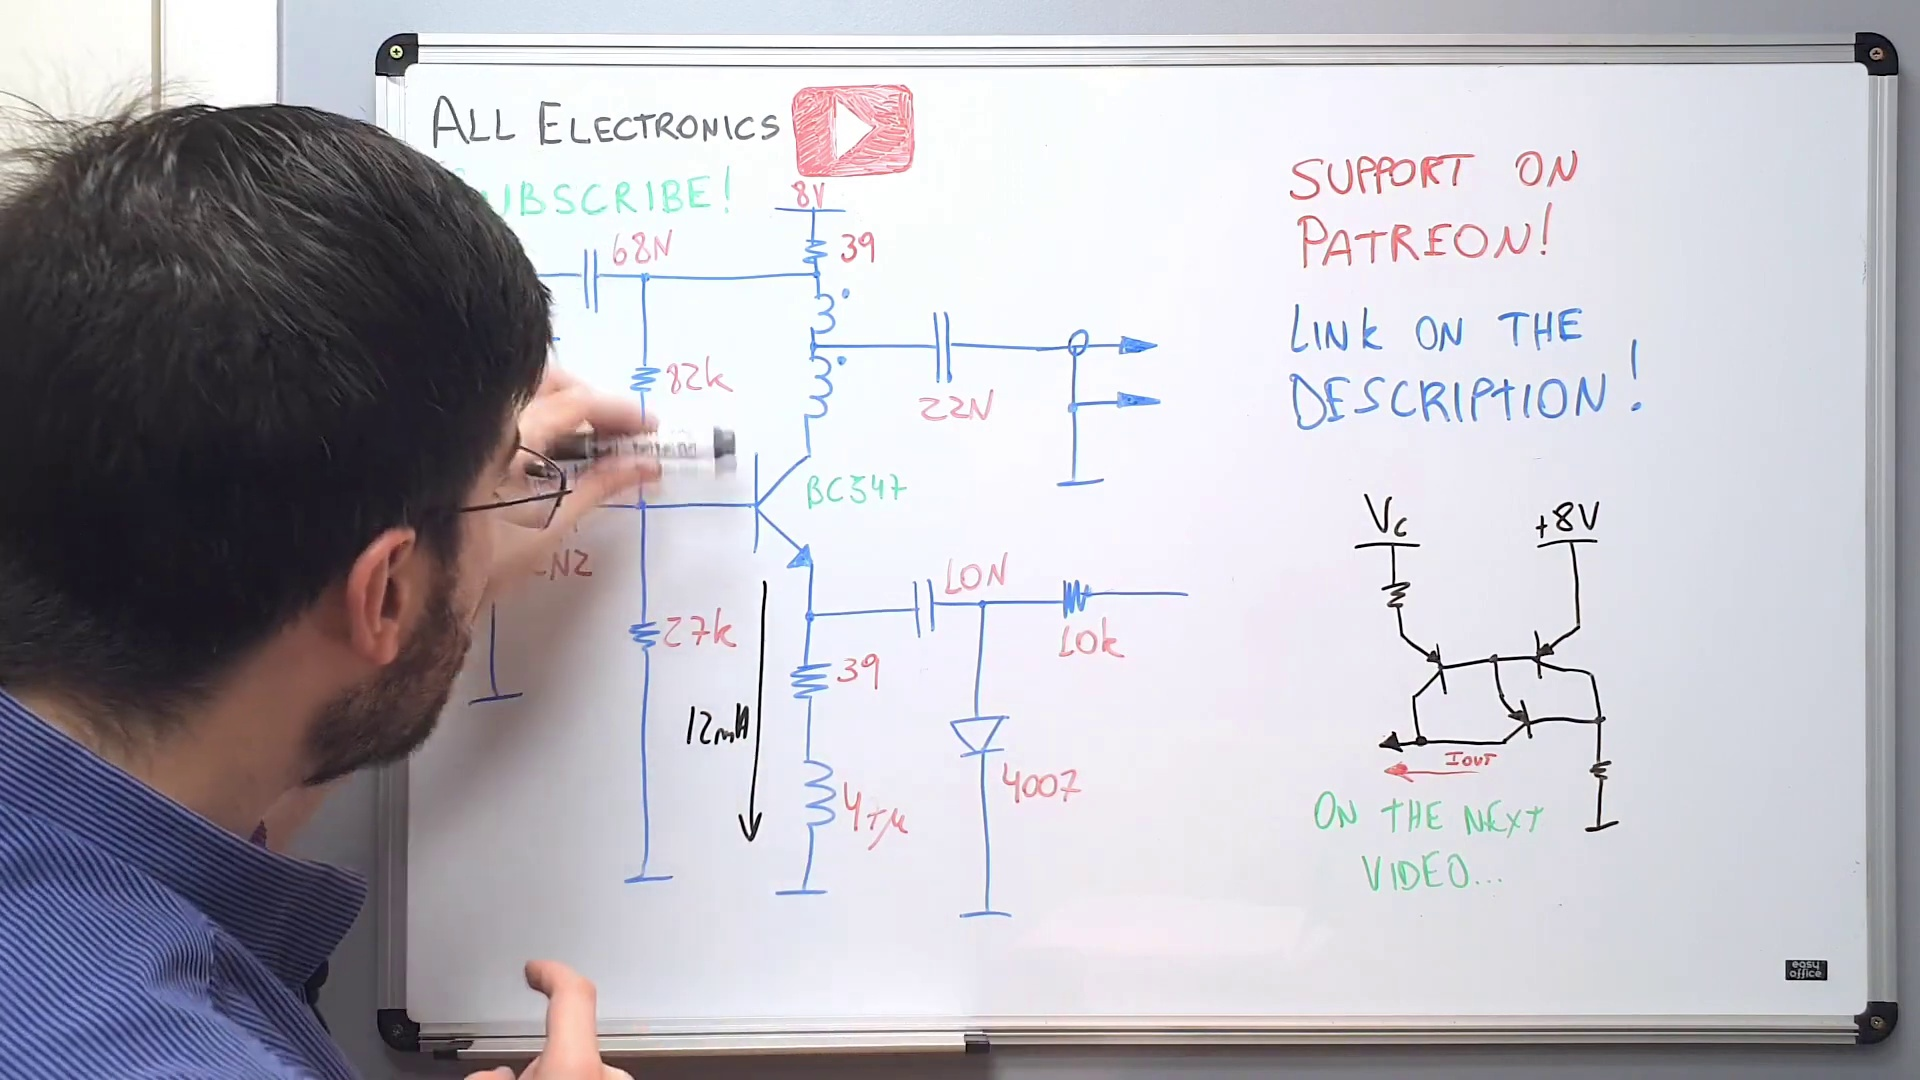 ALL ELECTRONICS
UBSCRIBE!
8V
68N
39
82k
22N
BC547
N2
10N
27k
10k
39
12mA
47µ
4007
SUPPORT ON
PATREON!
LINK ON THE
DESCRIPTION!
VC
+8V
IOUT
ON THE NEXT
VIDEO...
easy
office